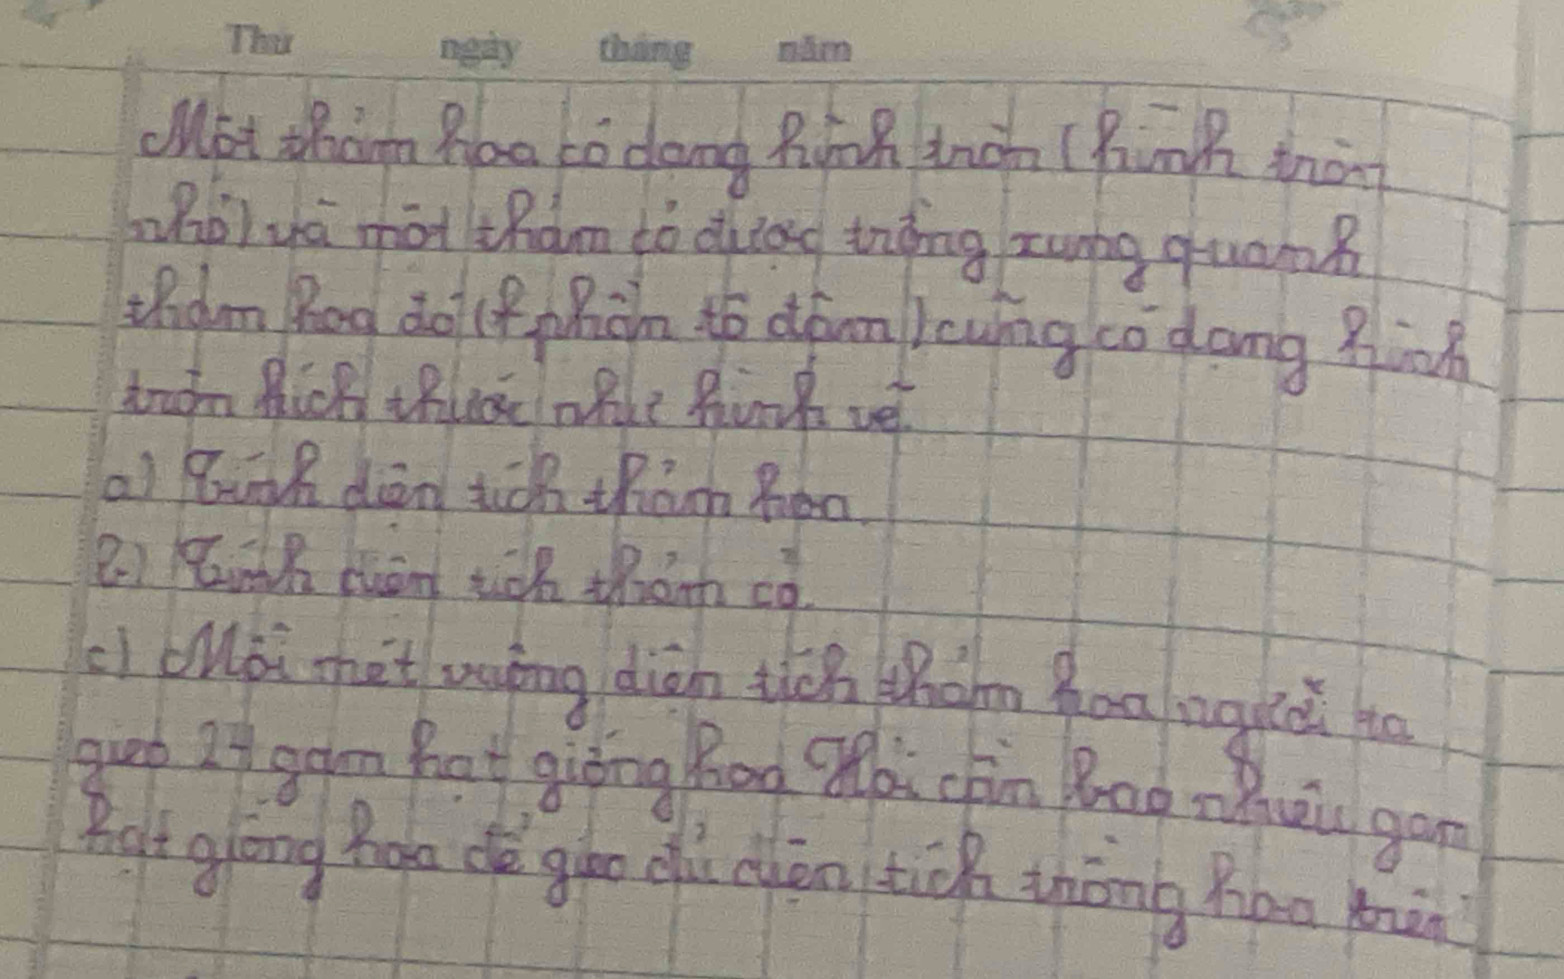 Thứ ngày tháng năm
Một thảm hoa có dạng hình tròn (hình tròn
nhỏ) và một thảm cỏ được trồng xung quanh
thảm hoa đó (phần tô đậm) cũng có dạng hình
tròn kích thước như hình vẽ.
a) Tính diện tích thảm hoa.
b) Tính diện tích thảm cỏ.
c) Mỗi mét vuông diện tích thảm hoa người ta
gieo gam hạt giống hoa Hỏi cần bao nhiêu gam
hạt giống hoa để gieo đủ diện tích trồng hoa trên